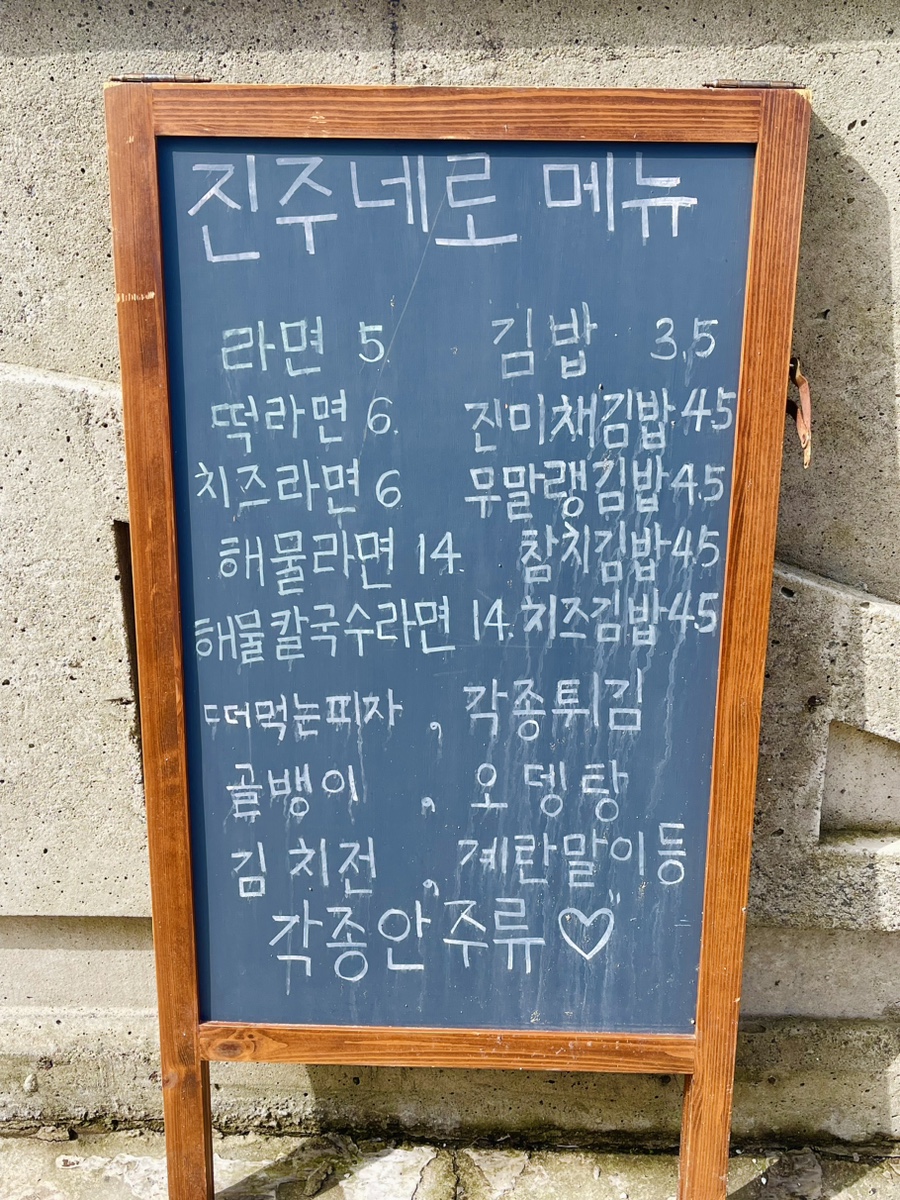 진주네로 메뉴
라면 5. 김밥 3.5
떡라면 6. 진미채김밥 4.5
치즈라면 6 무말랭김밥 4.5
해물라면 14. 참치김밥 4.5
해물칼국수라면 14. 치즈김밥 4.5
떠먹는피자 , 각종튀김
골뱅이 , 오뎅탕
김치전 , 계란말이등
각종안주류♡